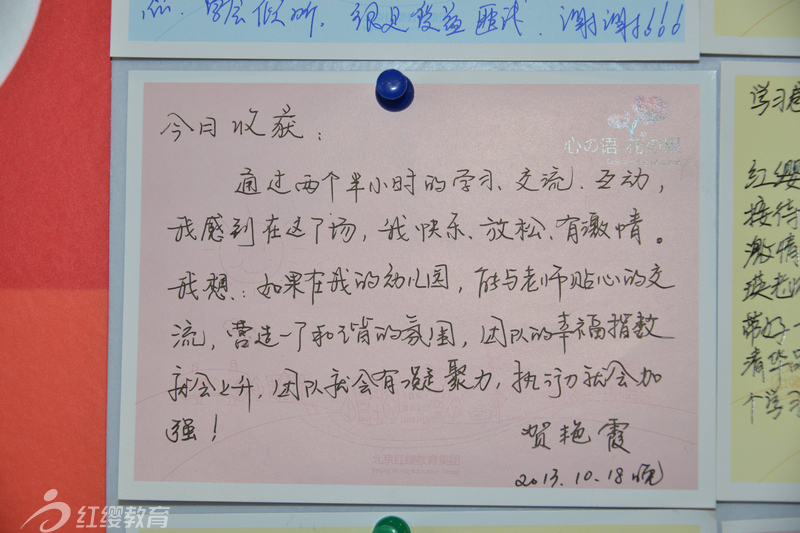 很是受益匪浅.谢谢!!!
今日收获:
心の语 花の缀
通过两个半小时的学习、交流、互动,
我感到在这个场,我快乐、放松、有激情。
我想:如果在我的幼儿园,能与老师贴心的交
流,营造一个和谐的氛围,团队的幸福指数
就会上升,团队就会有凝聚力,执行力就会加
强!
贺艳霞
2013.10.18晚
北京红缨教育集团
学习感
红缨
接待
激情
瑛老师
带好一
清华品
个学习
红缨教育